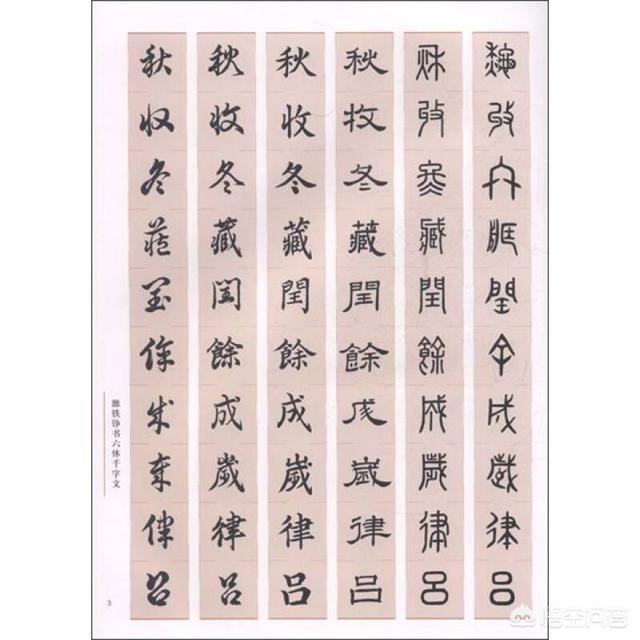 秋收冬藏閏餘成歲律呂
秋收冬藏閏餘成歲律呂
秋收冬藏閏餘成歲律呂
秋收冬藏閏餘成歲律呂
秋收冬藏閏餘成歲律呂
秋收冬藏閏餘成歲律呂
铁铮书六体千字文
3
悟空问答